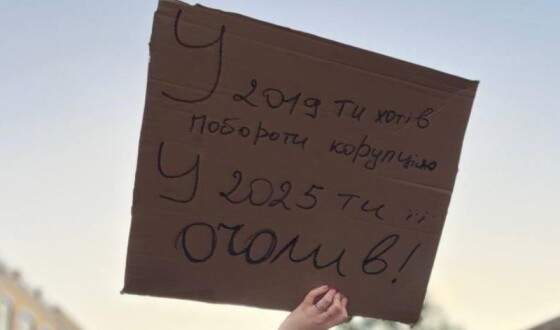 У
2019 ти хотів
побороти корупцію
У 2025 ти її
очолив!